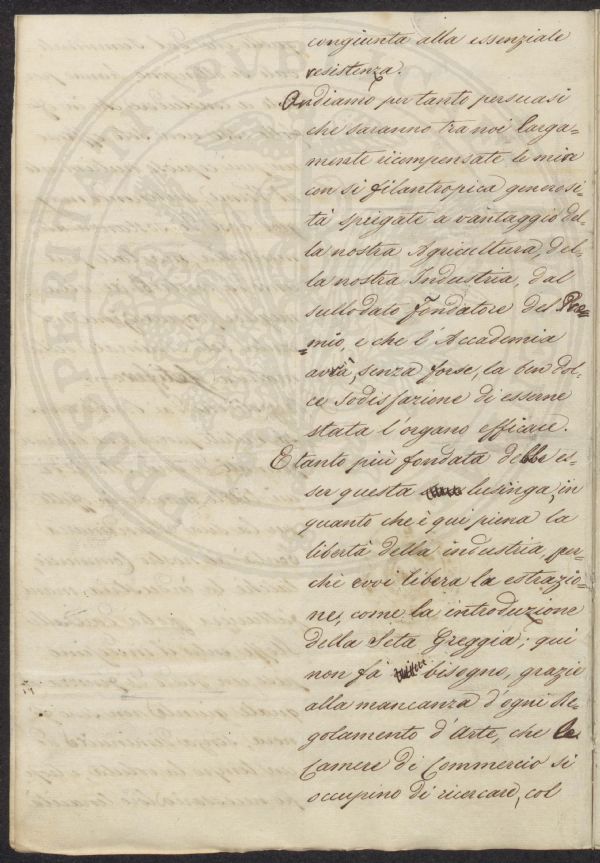 congiunta alla essenziale
resistenza.
Andiamo per tanto persuasi
che saranno tra noi larga-
mente ricompensate le mire
con si filantropica generosi-
tà spiegate a vantaggio del-
la nostra Agricoltura, del-
la nostra Industria, dal
sullodato fondatore del Pre-
mio, e che l'Accademia
avrà, senza forse, la ben dol-
ce sodisfazione di esserne
stata l'organo efficace.
E tanto più fondata debbe es-
ser questa lusinga, in
quanto che è qui piena la
libertà della industria, per-
chè evvi libera la estrazio-
ne, come la introduzione
della Seta Greggia; qui
non fà bisogno, grazie
alla mancanza d'ogni Re-
golamento d'Arte, che le
Camere di Commercio si
occupino di ricercare, col
PROSPERITATI PUBLICAE